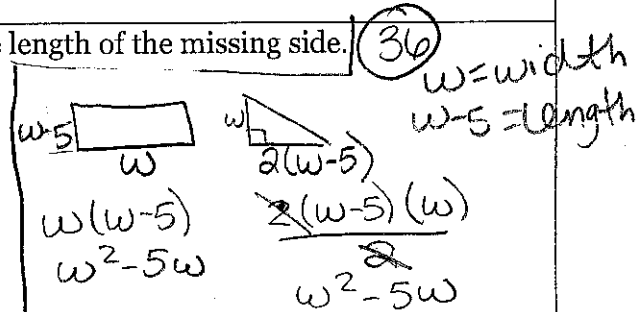 length of the missing side. 36
w=width
w-5=length
w-5
w
w
2(w-5)
w(w-5)
w²-5w
2(w-5)(w)
2
w²-5w